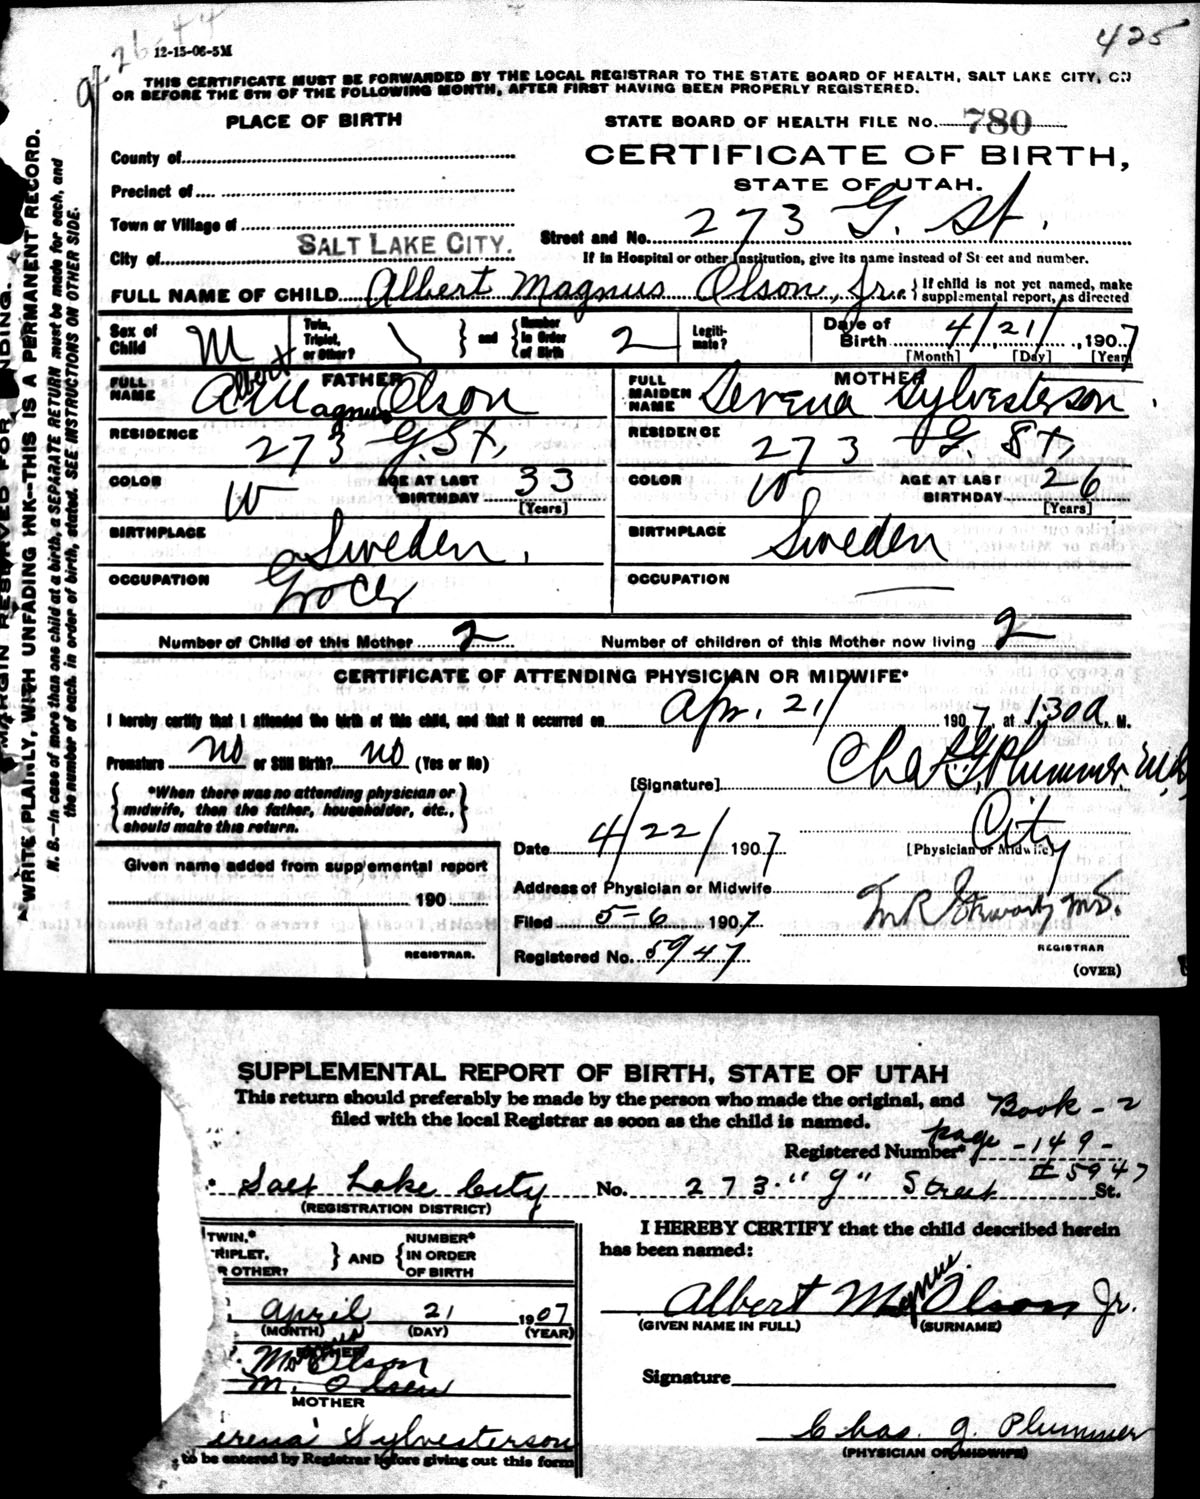 425
9-26-44
12-15-06-5M
THIS CERTIFICATE MUST BE FORWARDED BY THE LOCAL REGISTRAR TO THE STATE BOARD OF HEALTH, SALT LAKE CITY, ON
OR BEFORE THE 5TH OF THE FOLLOWING MONTH, AFTER FIRST HAVING BEEN PROPERLY REGISTERED.
PLACE OF BIRTH
STATE BOARD OF HEALTH FILE No. 780
County of
CERTIFICATE OF BIRTH,
Precinct of
STATE OF UTAH.
Town or Village of
Street and No. 273 G. St.
City of SALT LAKE CITY.
If in Hospital or other Institution, give its name instead of Street and number.
FULL NAME OF CHILD Albert Magnus Olson, Jr. { If child is not yet named, make
supplemental report, as directed
Sex of Child M
Twin, Triplet, or Other? } and { Number in Order of Birth 2
Legiti-mate?
Date of Birth 4/21/, 1907
[Month] [Day] [Year]
FATHER
FULL NAME A Albert M Magnus Olson
MOTHER
FULL MAIDEN NAME Serena Sylvesterson.
RESIDENCE 273 G. St,
RESIDENCE 273 G. St,
COLOR W AGE AT LAST BIRTHDAY 33 [Years]
COLOR W AGE AT LAST BIRTHDAY 26 [Years]
BIRTHPLACE Sweden.
BIRTHPLACE Sweden
OCCUPATION Grocer
OCCUPATION —
Number of Child of this Mother 2 Number of children of this Mother now living 2
CERTIFICATE OF ATTENDING PHYSICIAN OR MIDWIFE*
I hereby certify that I attended the birth of this child, and that it occurred on Apr. 21/ 1907, at 1:30 a. M.
Premature no or Still Birth? no (Yes or No)
[Signature] Chas G. Plummer M.D.
{ *When there was no attending physician or
midwife, then the father, householder, etc.,
should make this return. }
City
Date 4/22/ 1907
[Physician or Midwife]
Given name added from supplemental report
190
REGISTRAR.
Address of Physician or Midwife
Filed 5-6 1907
M R Stewart M.D.
REGISTRAR
Registered No. 5947
(OVER)
MARGIN RESERVED FOR BINDING.
WRITE PLAINLY, WITH UNFADING INK—THIS IS A PERMANENT RECORD.
N. B.—In case of more than one child at a birth, a SEPARATE RETURN must be made for each, and
the number of each, in order of birth, stated. SEE INSTRUCTIONS ON OTHER SIDE.
SUPPLEMENTAL REPORT OF BIRTH, STATE OF UTAH
This return should preferably be made by the person who made the original, and
filed with the local Registrar as soon as the child is named.
Book - 2
page - 149 -
Registered Number* # 5947
Salt Lake City No. 273 "G" Street St.
(REGISTRATION DISTRICT)
TWIN,* RIPLET, R OTHER? } AND { NUMBER* IN ORDER OF BIRTH
I HEREBY CERTIFY that the child described herein
has been named:
Albert Magnus Olson Jr.
(GIVEN NAME IN FULL) (SURNAME)
April 21 1907
(MONTH) (DAY) (YEAR)
M. Olson
M. Olsen
MOTHER
erena Sylvesterson
to be entered by Registrar before giving out this form
Signature
Chas. G. Plummer
(PHYSICIAN OR MIDWIFE)